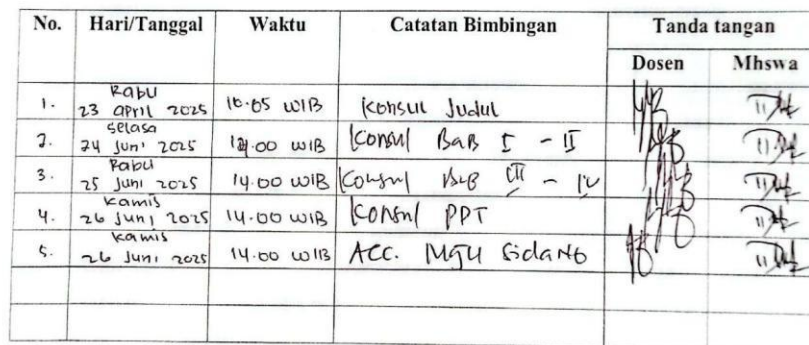 No. Hari/Tanggal Waktu Catatan Bimbingan Tanda tangan
Dosen Mhswa
1. Rabu 23 april 2025 10.05 WIB Konsul Judul
2. Selasa 24 Juni 2025 14.00 WIB Konsul BAB I - II
3. Rabu 25 Juni 2025 14.00 WIB Konsul BAB III - IV
4. Kamis 26 Juni 2025 14.00 WIB Konsul PPT
5. Kamis 26 Juni 2025 14.00 WIB Acc. Maju Sidang